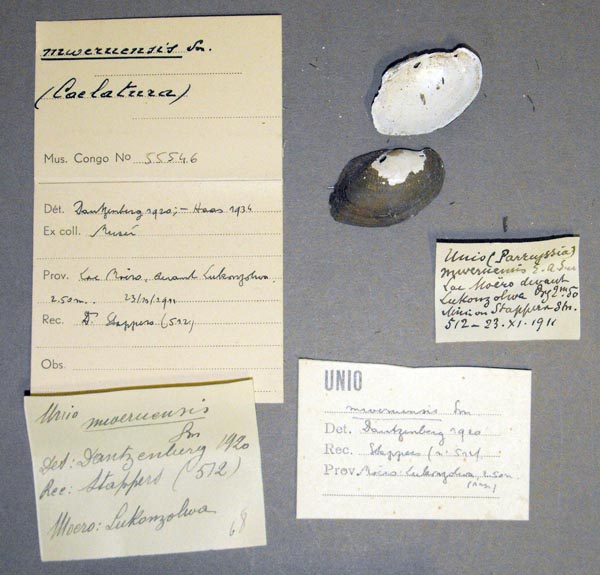 mweruensis Sm.
(Caelatura)
Mus. Congo No 55546
Dét. Dautzenberg 1920; - Haas 1934
Ex coll. Musée
Prov. Lac Moëro, devant Lukonzolwa.
2.50m. 23/11/1911
Rec. Dr. Stappers (512)
Obs.
Unio (Parreyssia)
mweruensis E.A. Sm
Lac Moëro devant
Lukonzolwa 2m50
Mission Stappers Stn.
512 - 23.XI.1911
Unio mweruensis
Sm
Det: Dautzenberg 1920
Rec: Stappers (512)
Moero: Lukonzolwa
68
UNIO
mweruensis Sm
Det. Dautzenberg 1920
Rec. Stappers (n. 512)
Prov. Moëro: Lukonzolwa, 2.50m.